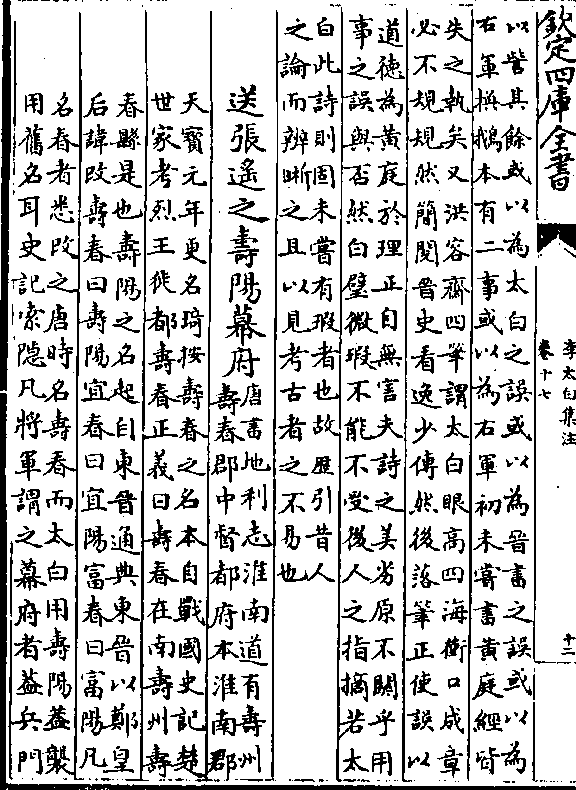 欽定四庫全書
李太白集注
卷十七
十二
以訾其餘或以為太白之誤或以為晉書之誤或以為
右軍換鵝本有二事或以為右軍初未嘗書黄庭經皆
失之執矣又洪容齋四筆謂太白眼高四海衝口成章
必不規規然簡閲晉史看逸少傳然後落筆正使誤以
道徳為黄庭於理正自無害夫詩之美劣原不關乎用
事之誤與否然白璧微瑕不能不受後人之指摘若太
白此詩則固未嘗有瑕者也故歴引昔人
之論而辨晰之且以見考古者之不易也
送張遥之壽陽幕府
唐書地利志淮南道有壽州
壽春郡中督都府本淮南郡
天寳元年更名琦按壽春之名本自戰國史記楚
世家考烈王徙都壽春正義曰壽春在南壽州壽
春縣是也壽陽之名起自東晉通典東晉以鄭皇
后諱改壽春曰壽陽宜春曰宜陽富春曰富陽凡
名春者悉改之唐時名壽春而太白用壽陽葢襲
用舊名耳史記索隠凡將軍謂之幕府者葢兵門